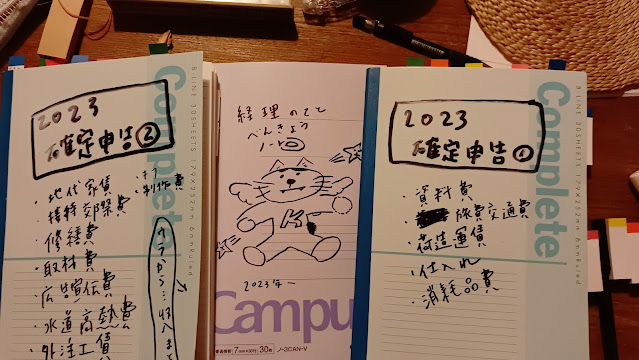 2023
確定申告②
・地代家賃
・接待交際費
・修繕費
・取材費
・広告宣伝費
・水道高熱費
・外注工賃
・制作費
Complete
B-LINE 30SHEETS 179×252mm 6mmRuled
経理のてて
べんきょう
ノート
K
2023年〜
Campu
7mm×30行
30枚
ノ-3CAN-V
2023
確定申告①
・資料費
・旅費交通費
・荷造運賃
・仕入れ
・消耗品費
Complete
B-LINE 30SHEETS 179×252mm 6mmRuled